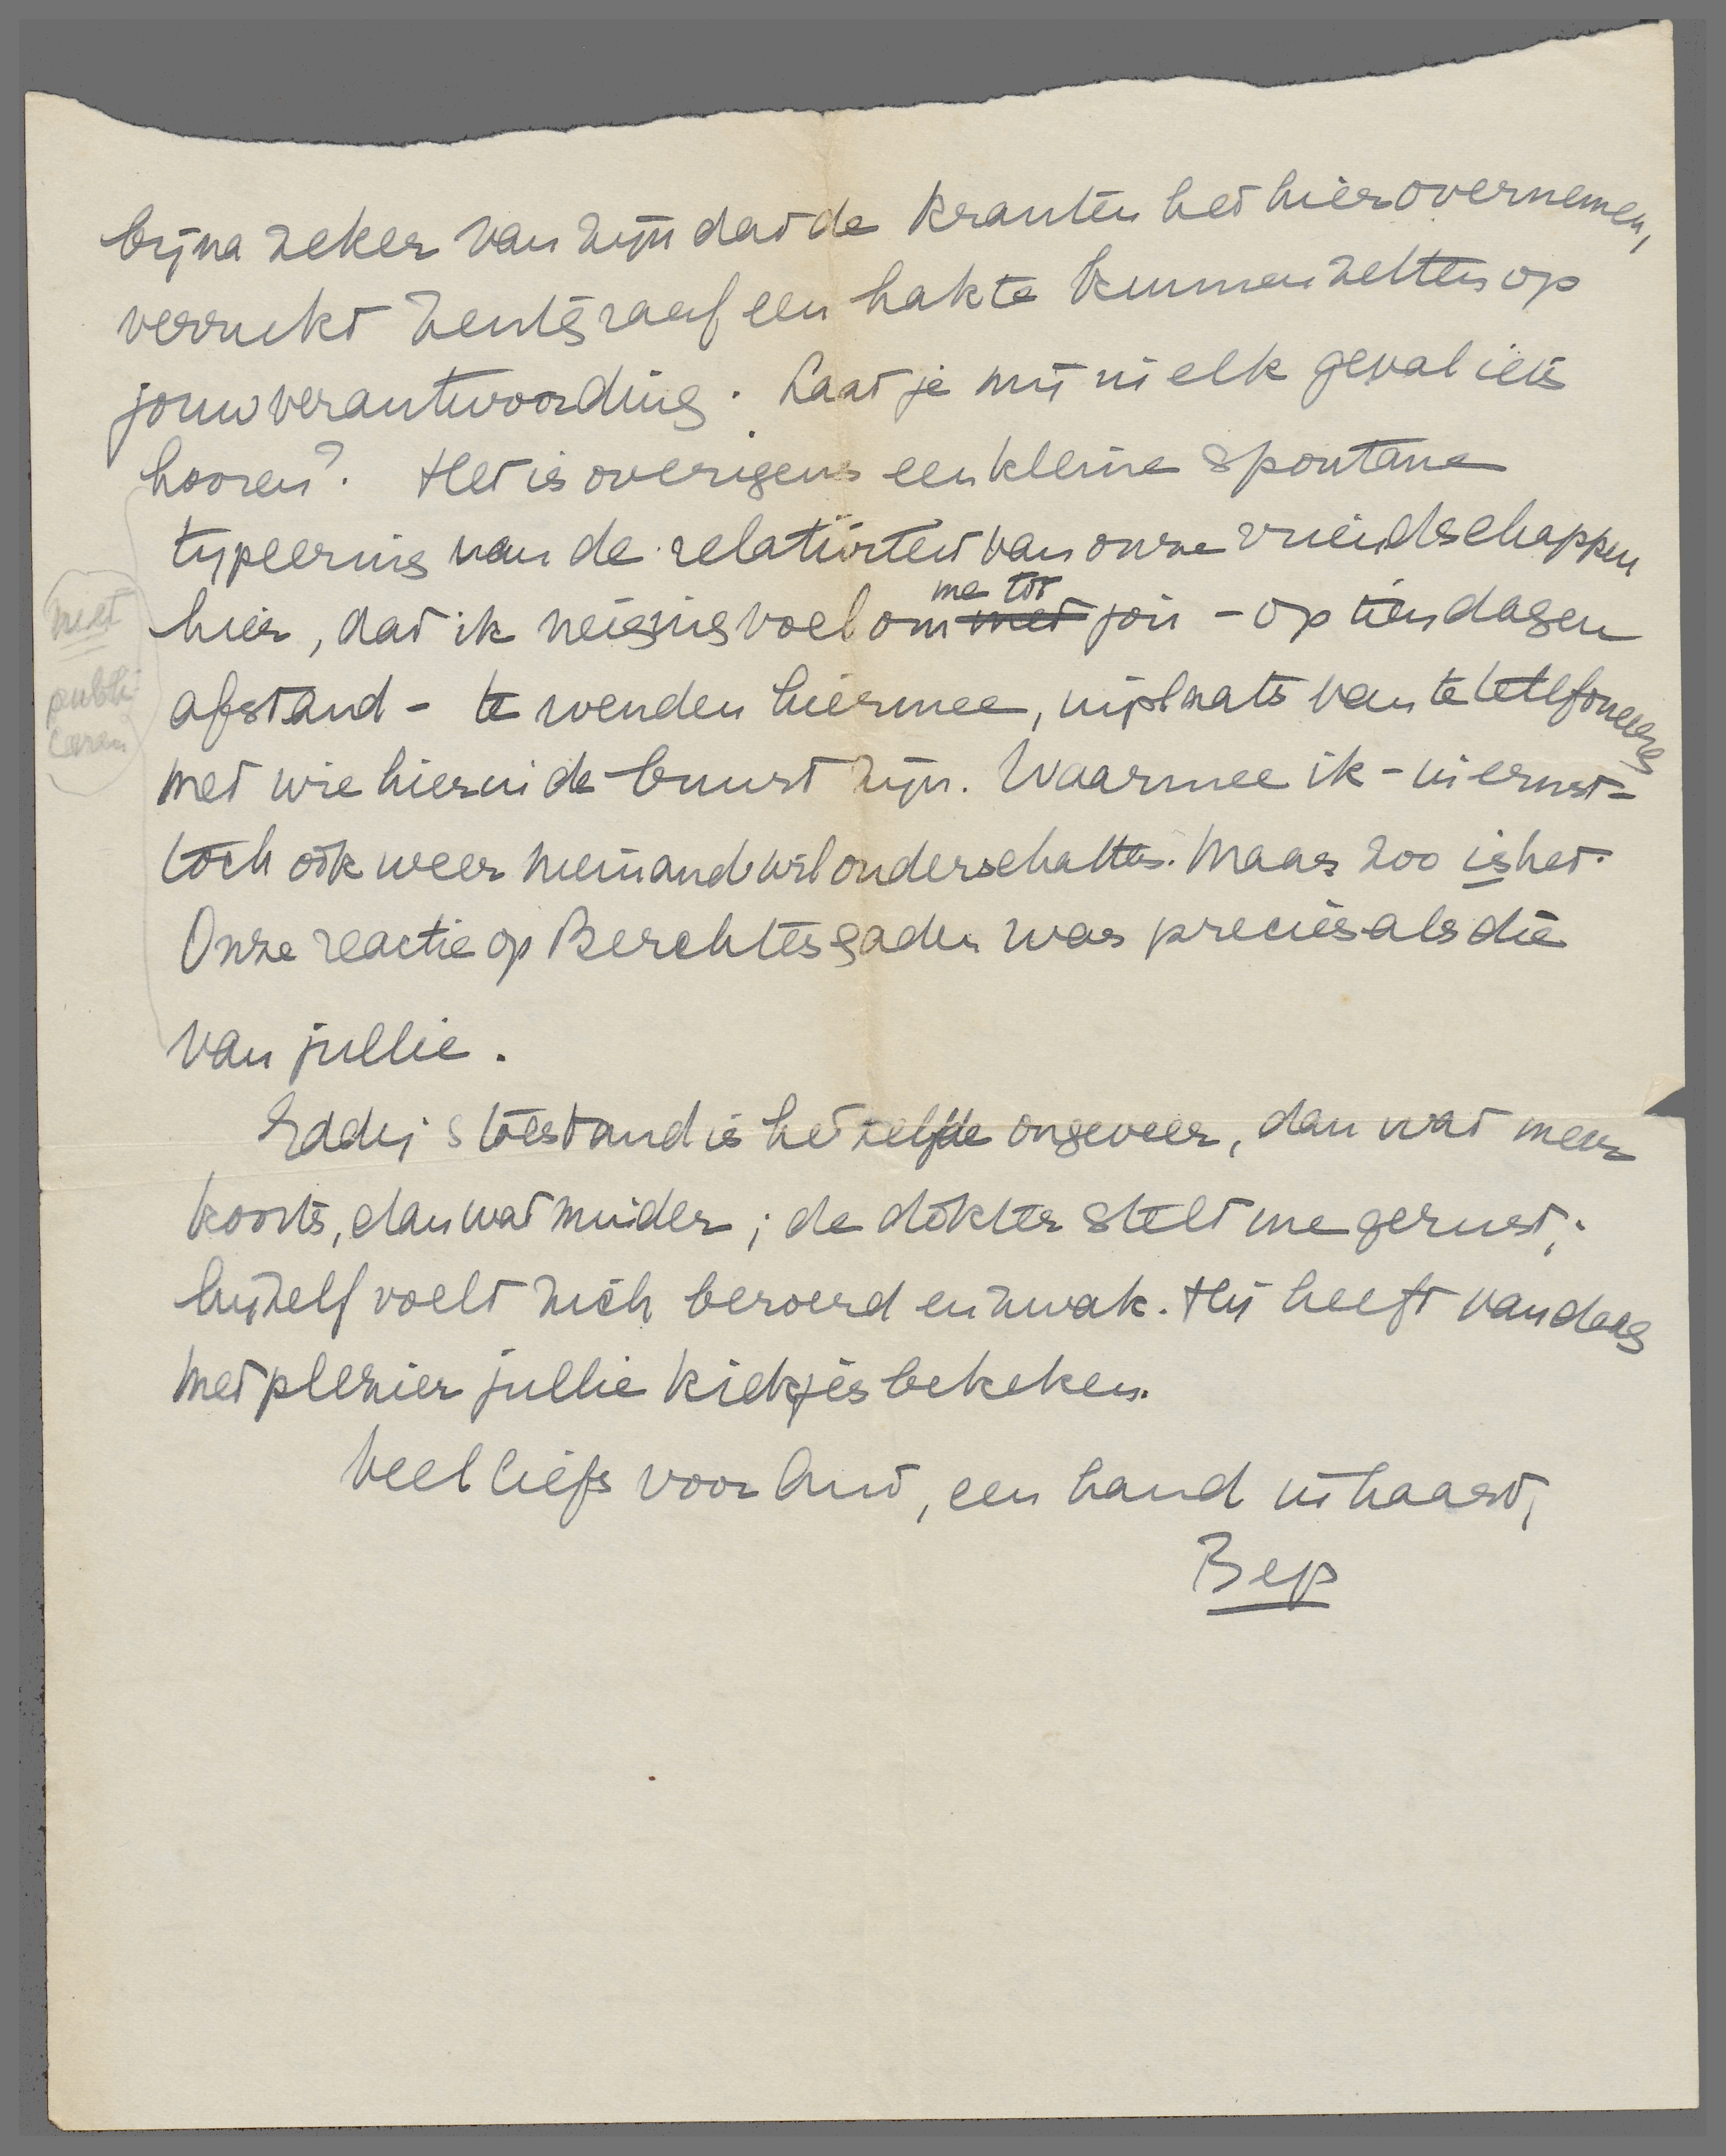 bijna zeker van zijn dat de kranten het hier overnemen,
verrukt Zentgraaf een hak te kunnen zetten op
jouw verantwoording. Laat je mij in elk geval iets
hooren? Het is overigens een kleine spontane
typeering van de relativiteit van onze vriendschappen
me tot
hier, dat ik neiging voel om met jou - op tien dagen
afstand - te wenden hiermee, in plaats van te telefoneeren
met wie hier in de buurt zijn. Waarmee ik - in ernst -
toch ook weer niemand wil onderschatten. Maar zoo is het.
Onze reactie op Berchtesgaden was precies als die
van jullie.
niet
publi-
ceren
Eddy's toestand is hetzelfde ongeveer, dan wat meer
koorts, dan wat minder; de dokter stelt me gerust;
hijzelf voelt zich beroerd en zwak. Hij heeft vandaag
met plezier jullie kiekjes bekeken.
Veel liefs voor Ant, een hand in haast,
Bep